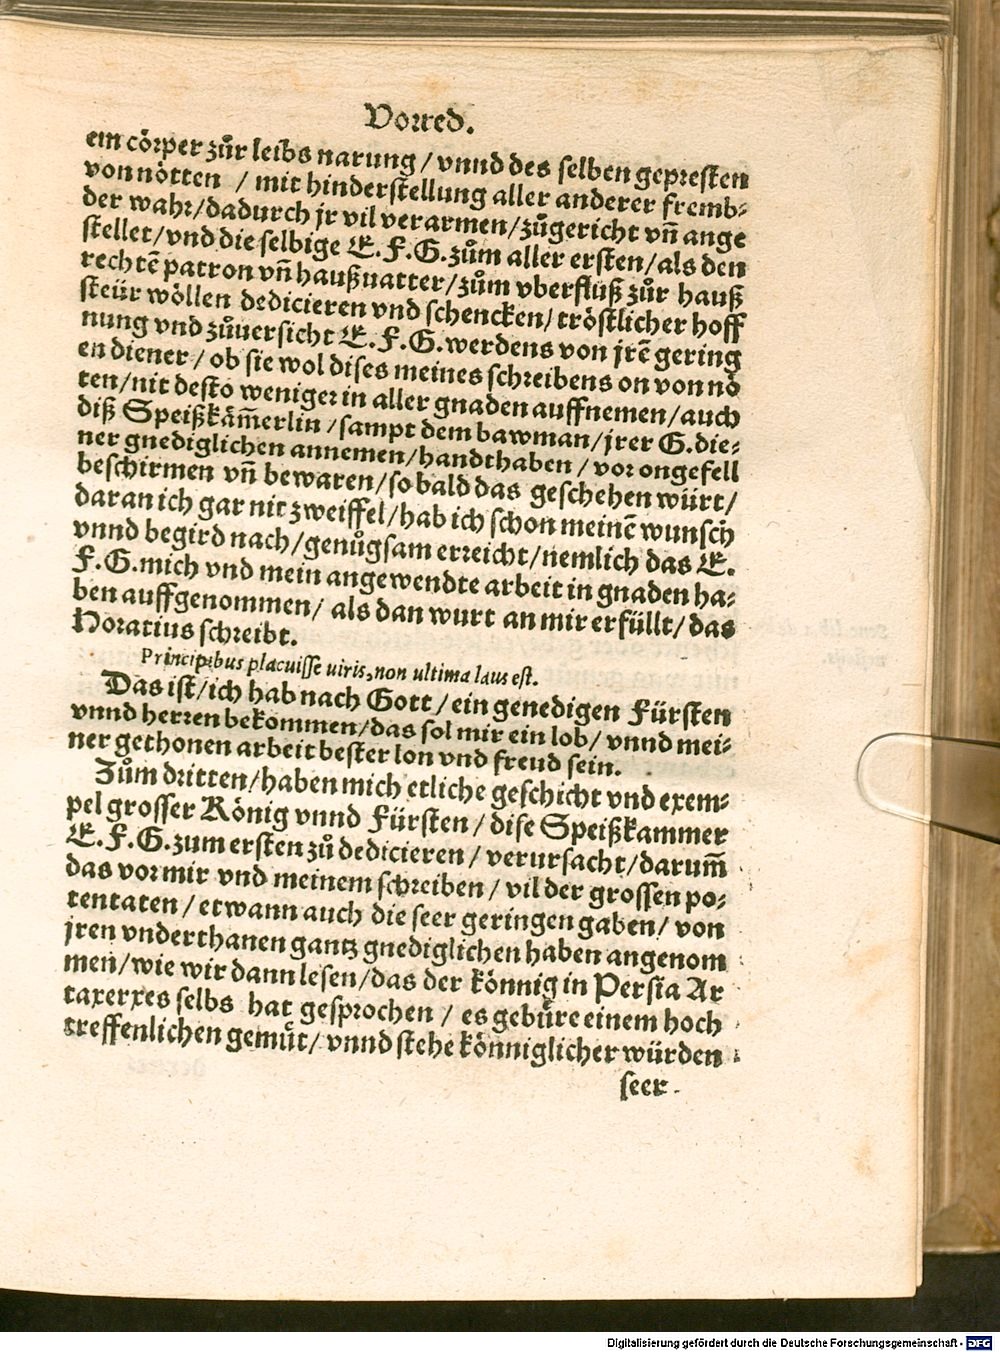 Vorred.
ein cörper zůr leibs narung / vnnd des selben gepresten
von nötten / mit hinderstellung aller anderer fremb-
der wahr/dadurch jr vil verarmen/zůgericht vñ ange
stellet/vnd die selbige E. F. G. zům aller ersten/als den
rechtē patron vñ haußuatter/zům vberfluß zůr hauß
steür wöllen dedicieren vnd schencken/ tröstlicher hoff
nung vnd zůuersicht E. F. G. werdens von jrē gering
en diener / ob sie wol dises meines schreibens on von nö
ten/nit desto weniger in aller gnaden auffnemen/auch
diß Speißkäm̃erlin /sampt dem bawman/jrer G. die-
ner gnediglichen annemen/handthaben / vor ongefell
beschirmen vñ bewaren/so bald das geschehen würt/
daran ich gar nit zweiffel/hab ich schon meinē wunsch
vnnd begird nach/genůgsam erreicht/nemlich das E.
F. G. mich vnd mein angewendte arbeit in gnaden ha-
ben auffgenommen/ als dan wurt an mir erfüllt/ das
Horatius schreibt.
Principibus placuisse uiris, non ultima laus est.
Das ist/ich hab nach Gott/ein genedigen Fürsten
vnnd herren bekommen/das sol mir ein lob/ vnnd mei-
ner gethonen arbeit bester lon vnd freud sein.
Zům dritten/haben mich etliche geschicht vnd exem-
pel grosser König vnnd Fürsten / dise Speißkammer
E. F. G. zum ersten zů dedicieren / verursacht/darum̃
das vor mir vnd meinem schreiben / vil der grossen po-
tentaten / etwann auch die seer geringen gaben/ von
jren vnderthanen gantz gnediglichen haben angenom
men/wie wir dann lesen/das der könnig in Persia Ar
taxerxes selbs hat gesprochen / es gebüre einem hoch
treffenlichen gemüt/ vnnd stehe könniglicher würden
seer
Digitalisierung gefördert durch die Deutsche Forschungsgemeinschaft - DFG